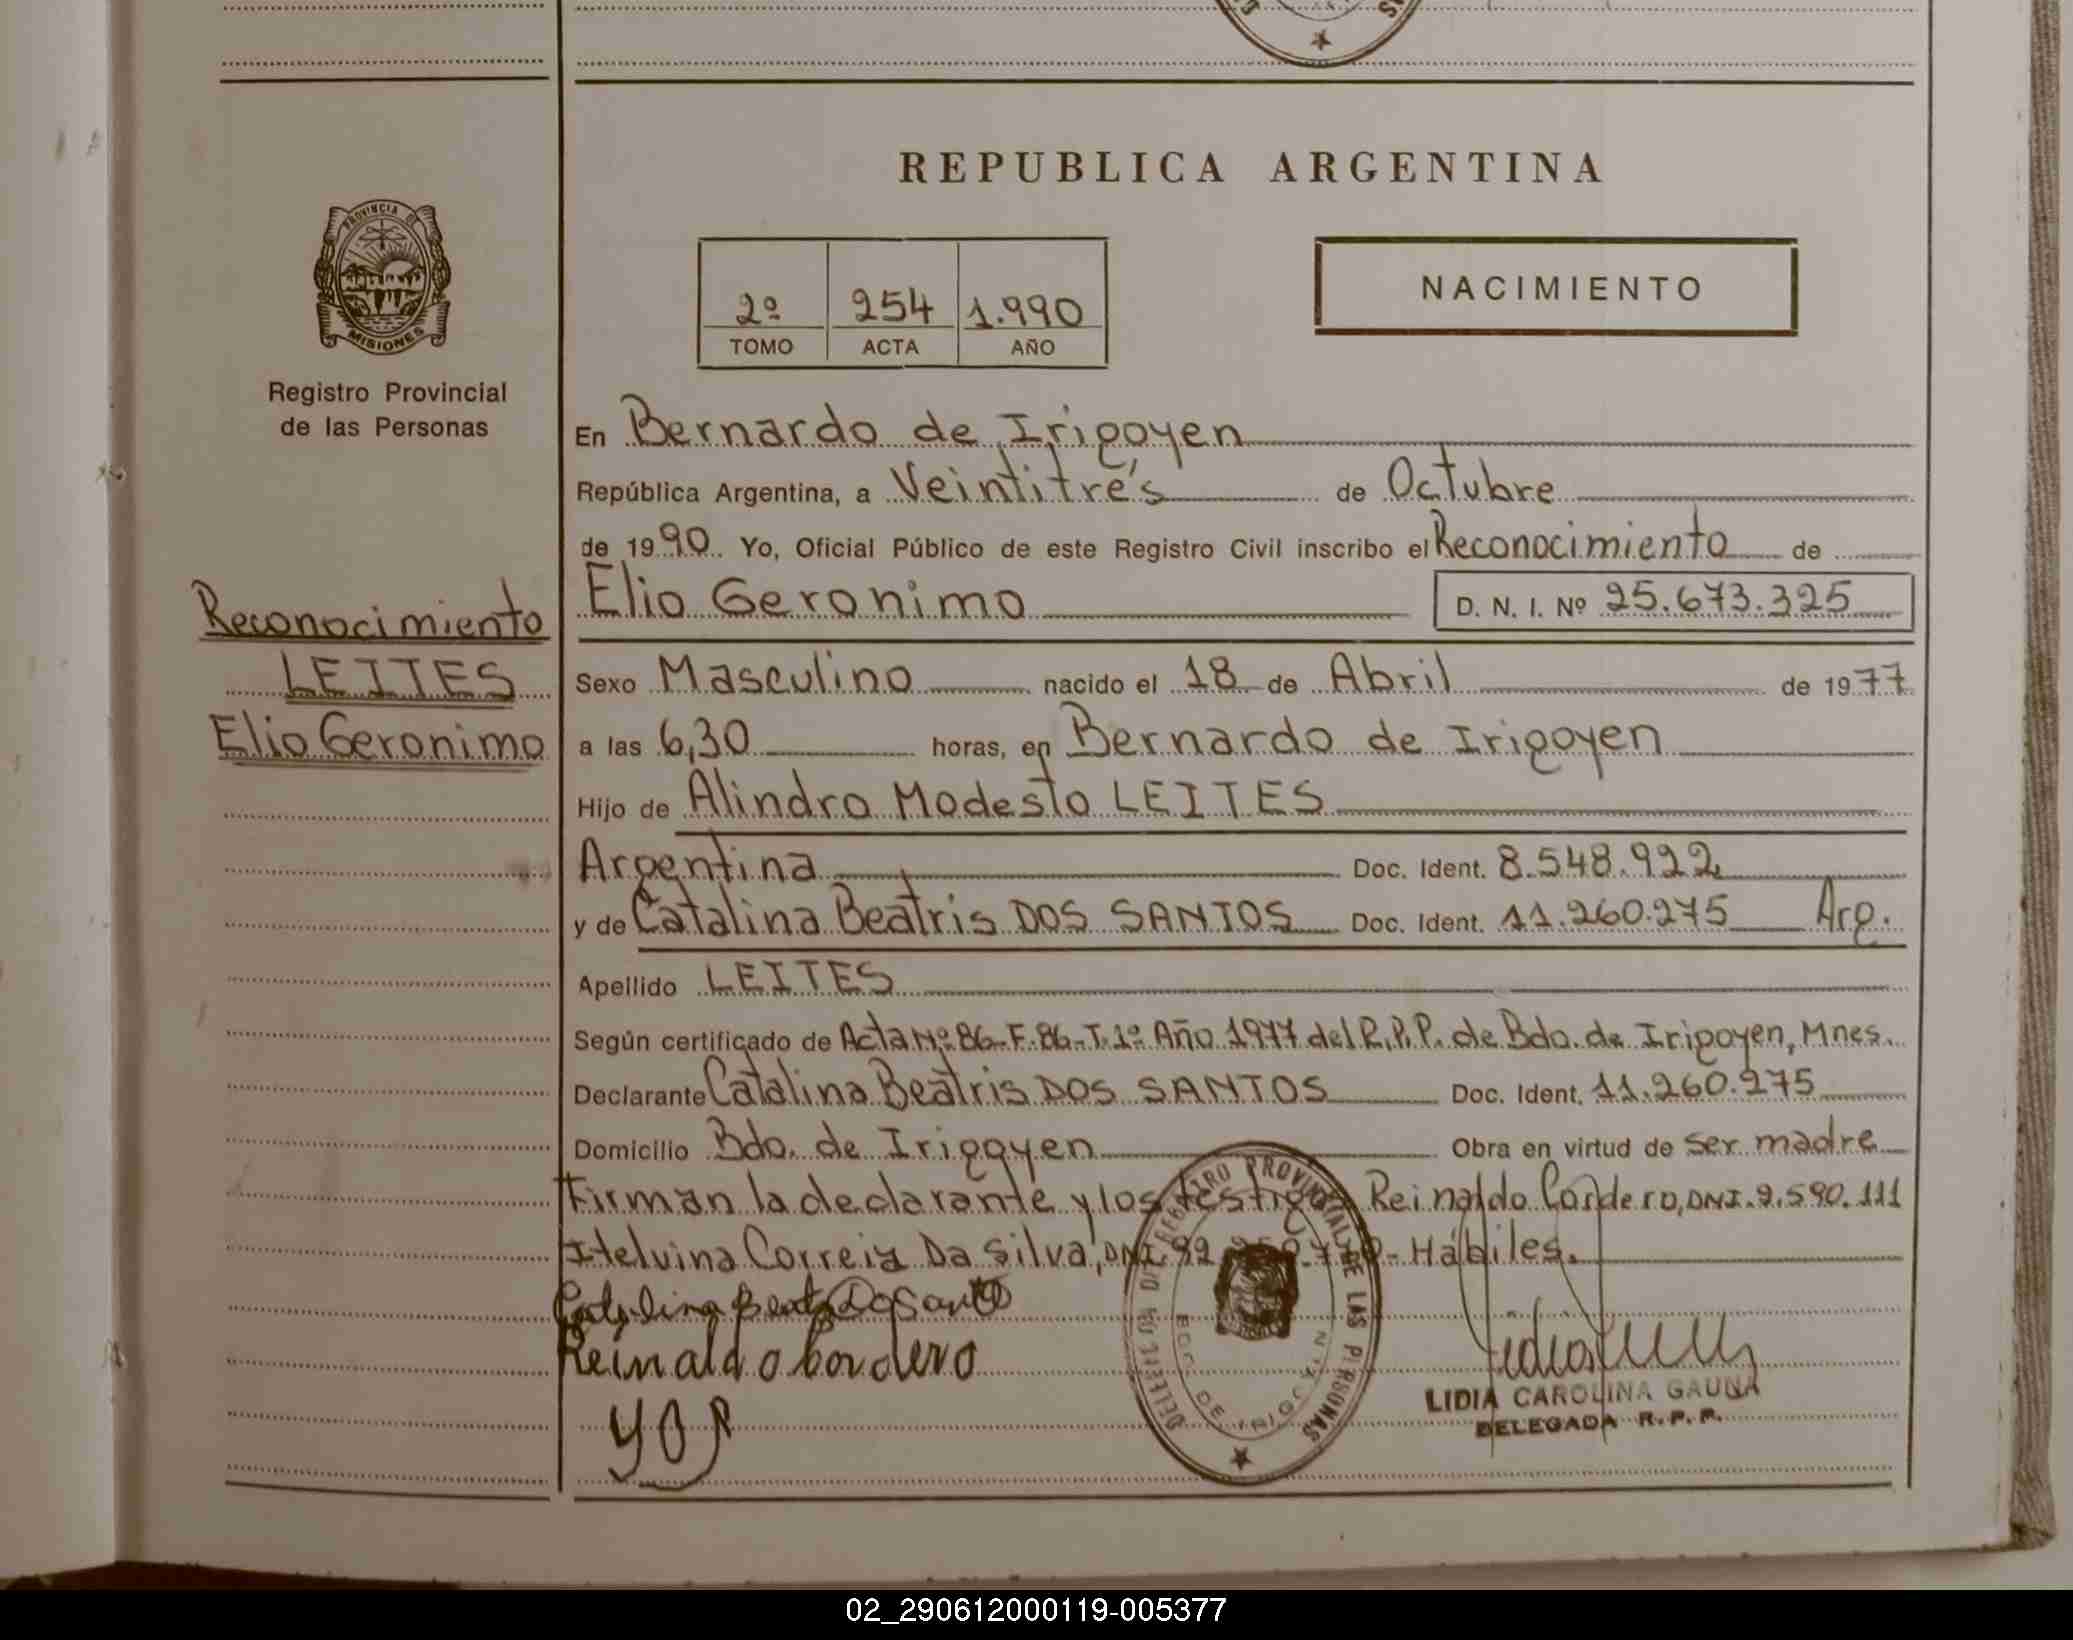 REPUBLICA ARGENTINA
PROVINCIA DE
MISIONES
Registro Provincial
de las Personas
2º 254 1.990
TOMO ACTA AÑO
NACIMIENTO
En Bernardo de Irigoyen
República Argentina, a Veintitrés de Octubre
de 1990. Yo, Oficial Público de este Registro Civil inscribo el Reconocimiento de
Elio Geronimo D. N. I. Nº 25.673.325
Reconocimiento
LEITES
Elio Geronimo
Sexo Masculino nacido el 18 de Abril de 1977
a las 6,30 horas, en Bernardo de Irigoyen
Hijo de Alindro Modesto LEITES
Argentina Doc. Ident. 8.548.922
y de Catalina Beatris DOS SANTOS Doc. Ident. 11.260.275 Arg.
Apellido LEITES
Según certificado de Acta Nº 86-F.86-T.1º Año 1977 del R.P.P. de Bdo. de Irigoyen, Mnes.
Declarante Catalina Beatris DOS SANTOS Doc. Ident. 11.260.275
Domicilio Bdo. de Irigoyen Obra en virtud de ser madre
Firman la declarante y los testigos Reinaldo Cordero, DNI. 9.590.111
Itelvina Correia Da Silva, DNI. 92 - Hábiles.
Reinaldo Cordero
LIDIA CAROLINA GAUNA
DELEGADA R.P.P.
REGISTRO PROVINCIAL DE LAS PERSONAS
BDO. DE IRIGOYEN
02_290612000119-005377